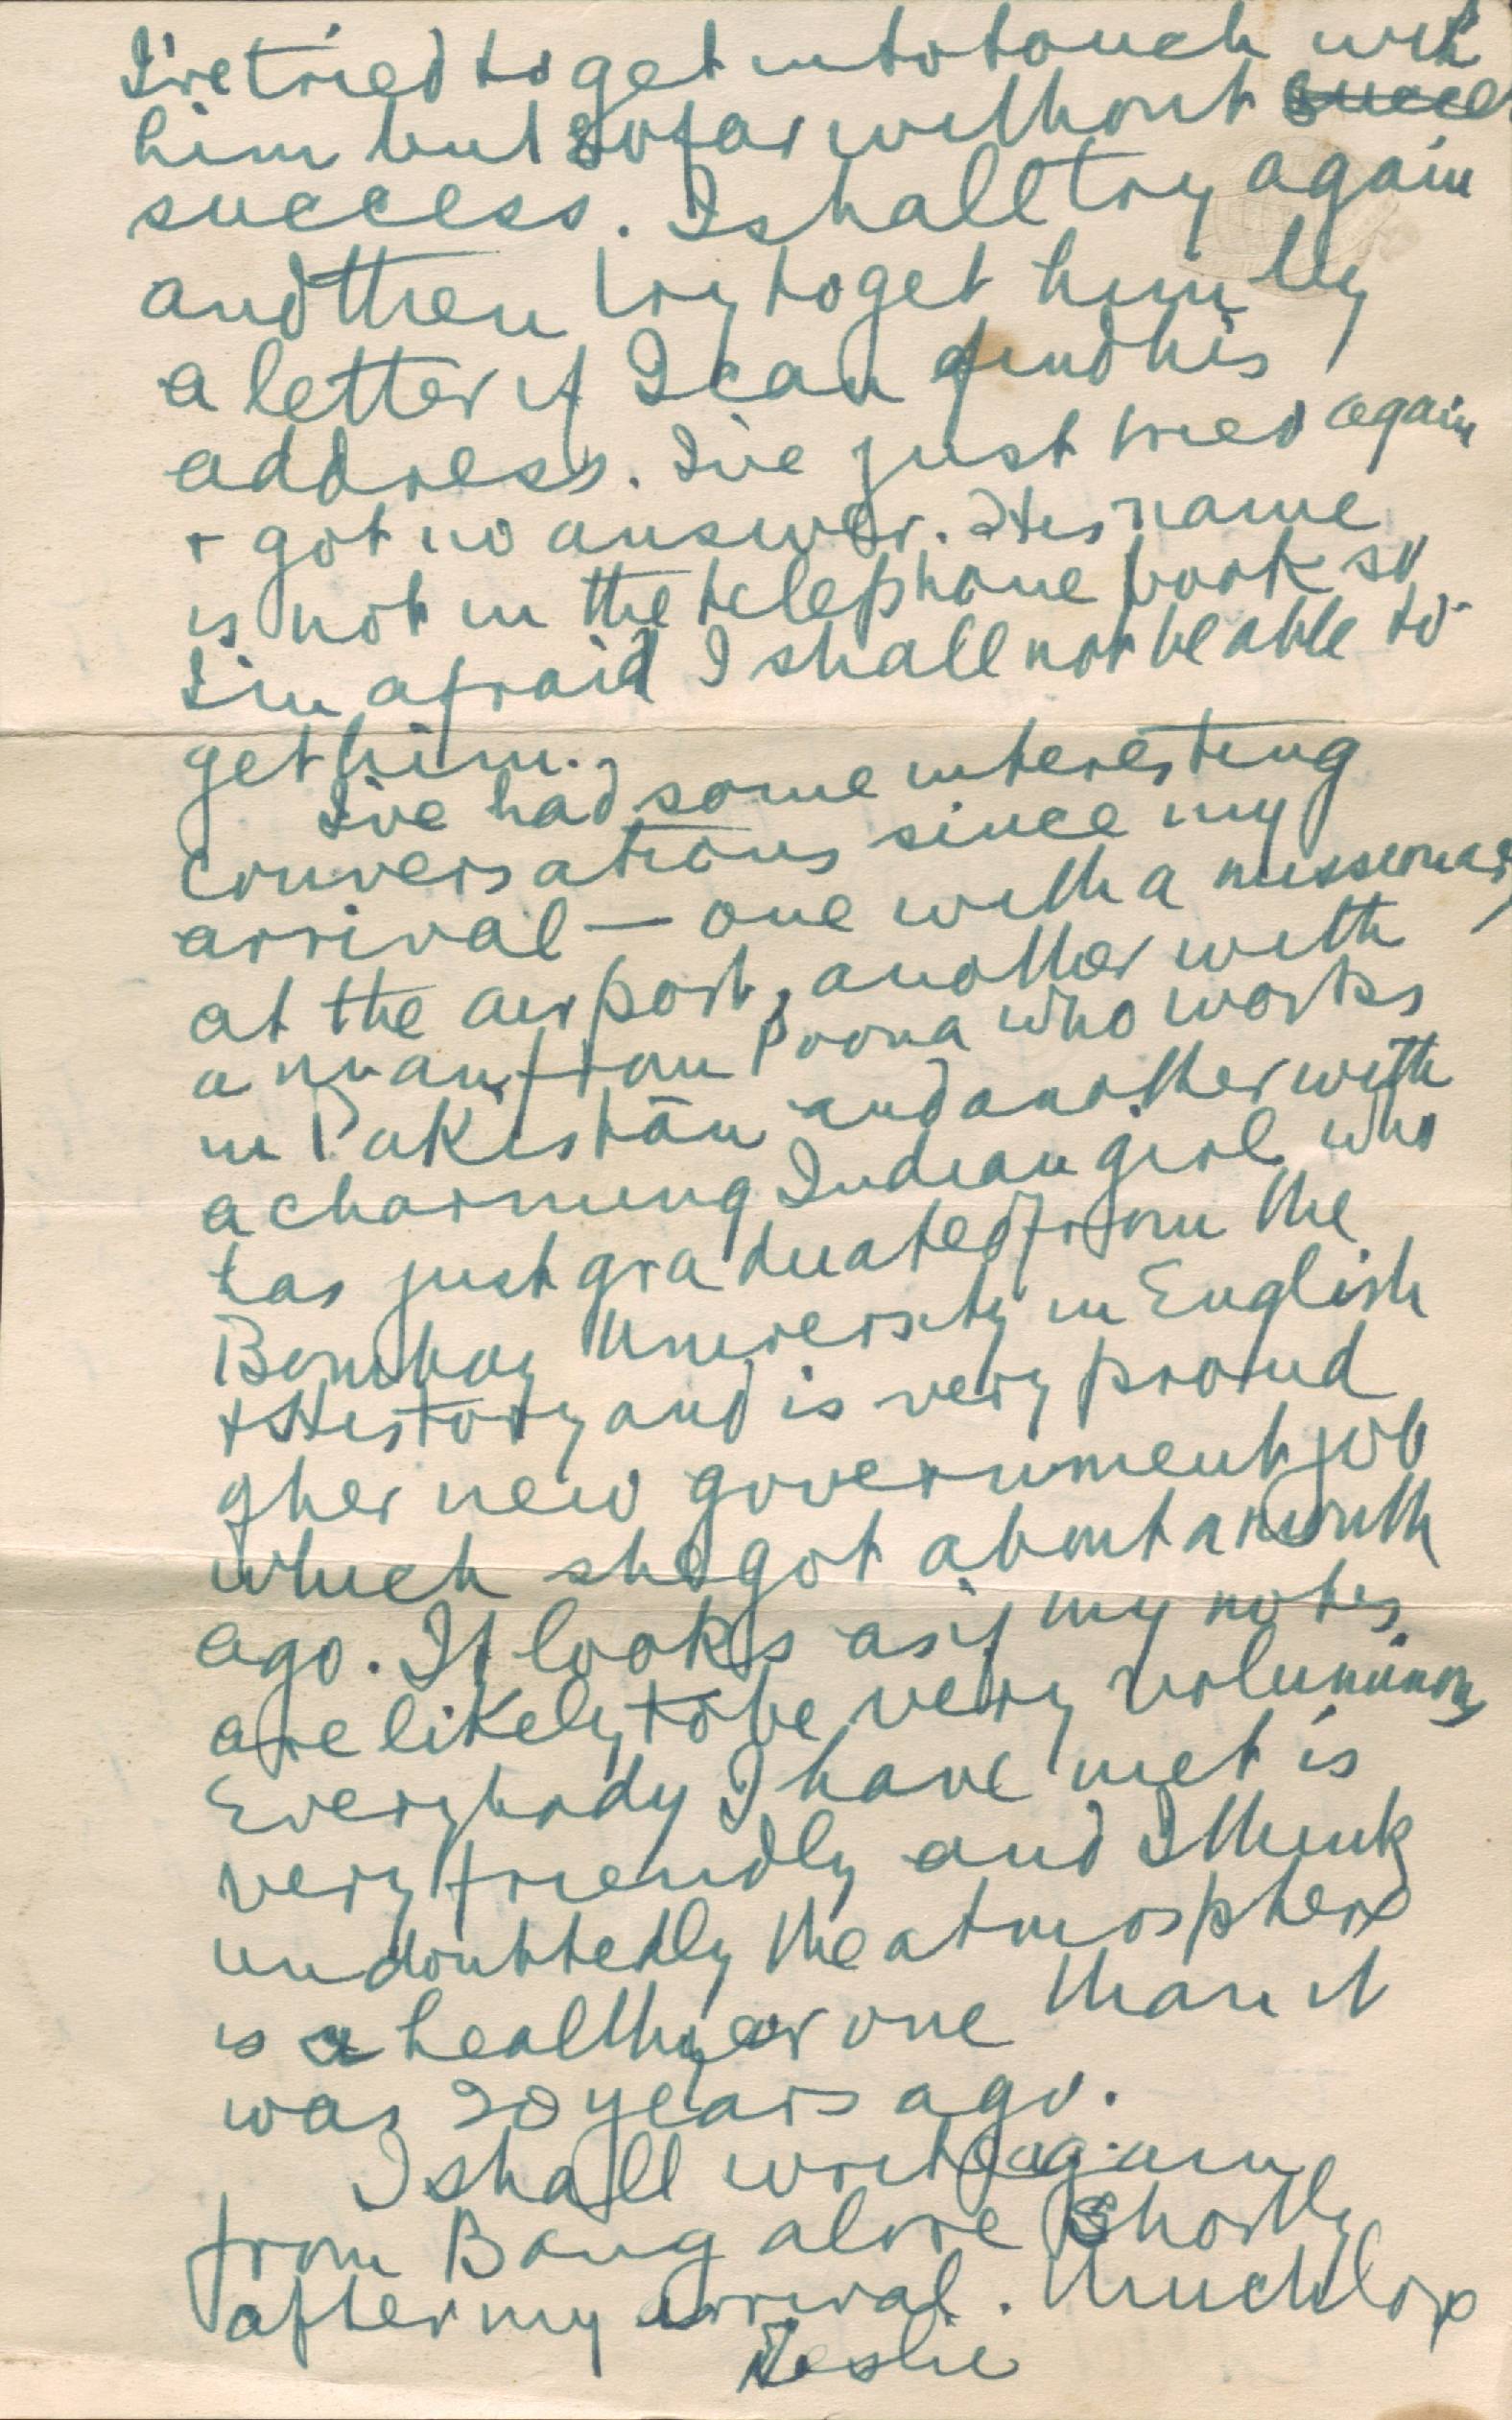 I've tried to get into touch with
him but so far without succe
success. I shall try again
and then try to get him by
a letter if I can find his
address. I've just tried again
+ got no answer. His name
is not in the telephone book so
I'm afraid I shall not be able to
get him.
I've had some interesting
conversations since my
arrival — one with a missionary
at the airport, another with
a man from Poona who works
in Pakistan and another with
a charming Indian girl who
has just graduated from the
Bombay University in English
+ History and is very proud
of her new government job
which she got about a month
ago. It looks as if my notes
are likely to be very voluminous
Everybody I have met is
very friendly and I think
undoubtedly the atmosphere
is a healthyer one than it
was 20 years ago.
I shall write again
from Bangalore shortly
after my arrival. Much love
Leslie